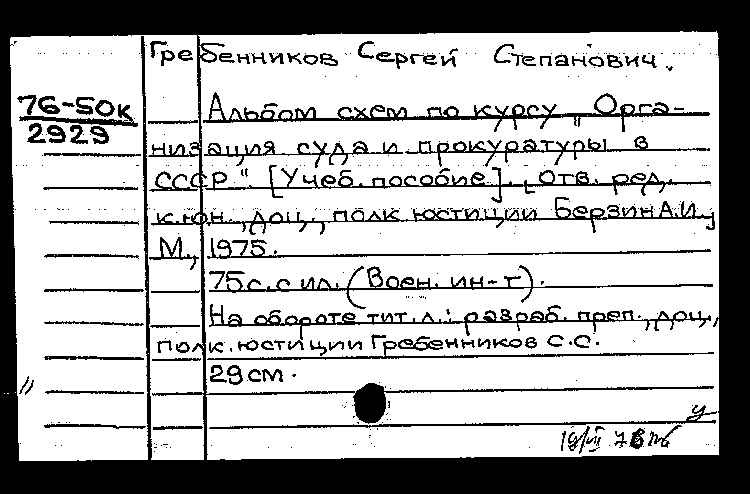 Гребенников Сергей Степанович.
76-50к
2929
Альбом схем по курсу „Орга-
низация суда и прокуратуры в
СССР". [Учеб. пособие]. [Отв. ред.
к.юн., доц., полк юстиции Берзин А.И.]
М., 1975.
75 с. с ил. (Воен. ин-т).
На обороте тит. л.: разраб. преп., доц.,
полк. юстиции Гребенников С.С.
29 см.